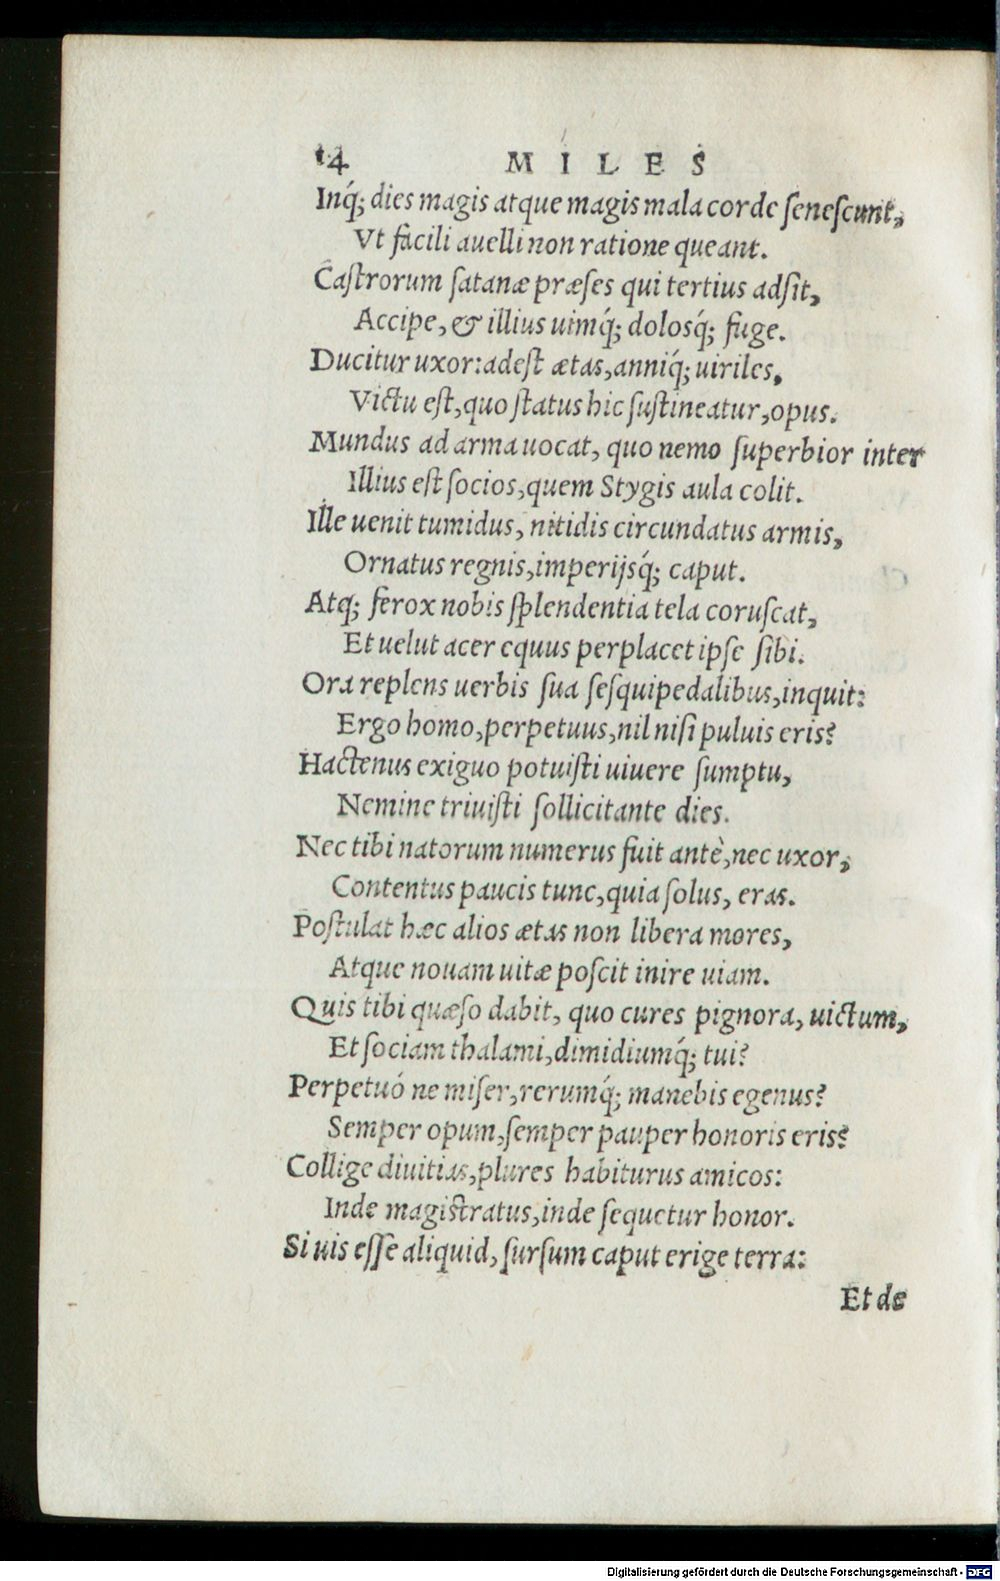 14 MILES
Inq́; dies magis atque magis mala corde ſeneſcunt,
Vt facili auelli non ratione queant.
Caſtrorum ſatanæ præſes qui tertius adſit,
Accipe, & illius uimq́; dolosq́; fuge.
Ducitur uxor: adeſt ætas, anniq́; uiriles,
Victu eſt, quo ſtatus hic ſuſtineatur, opus.
Mundus ad arma uocat, quo nemo ſuperbior inter
Illius eſt ſocios, quem Stygis aula colit.
Ille uenit tumidus, nitidis circundatus armis,
Ornatus regnis, imperijsq́; caput.
Atq; ferox nobis ſplendentia tela coruſcat,
Et uelut acer equus perplacet ipſe ſibi.
Ora replens uerbis ſua ſeſquipedalibus, inquit:
Ergo homo, perpetuus, nil niſi puluis eris?
Hactenus exiguo potuiſti uiuere ſumptu,
Nemine triuiſti ſollicitante dies.
Nec tibi natorum numerus fuit antè, nec uxor,
Contentus paucis tunc, quia ſolus, eras.
Poſtulat hæc alios ætas non libera mores,
Atque nouam uitæ poſcit inire uiam.
Quis tibi quæſo dabit, quo cures pignora, uictum,
Et ſociam thalami, dimidiumq́; tui?
Perpetuó ne miſer, rerumq́; manebis egenus?
Semper opum, ſemper pauper honoris eris?
Collige diuitias, plures habiturus amicos:
Inde magiſtratus, inde ſequetur honor.
Si uis eſſe aliquid, ſurſum caput erige terra:
Et de
Digitalisierung gefördert durch die Deutsche Forschungsgemeinschaft - DFG